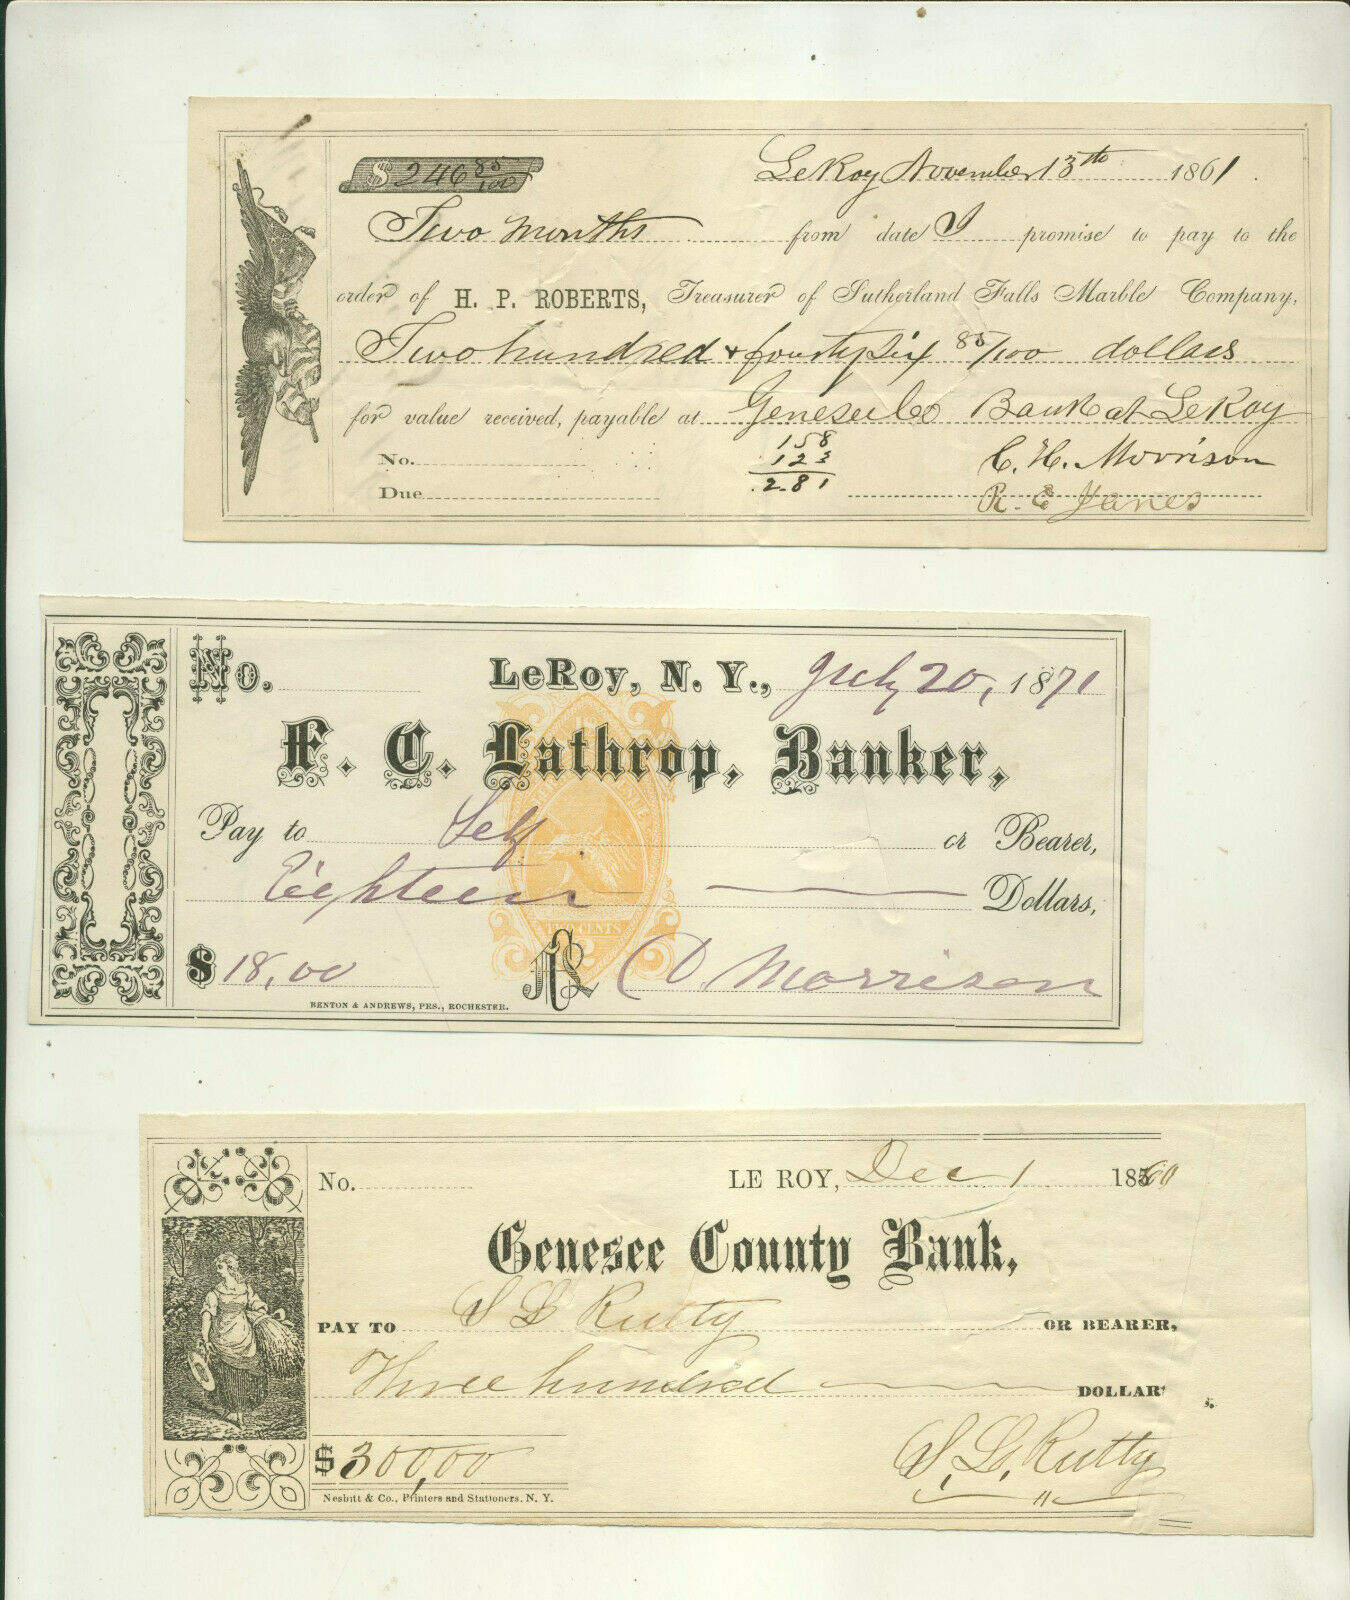 $ 246 85/100
LeRoy November 13th 1861
Two months from date I promise to pay to the
order of H. P. ROBERTS, Treasurer of Sutherland Falls Marble Company,
Two hundred & fourty six 85/100 dollars
for value received, payable at Genesee Co Bank at LeRoy
No.
158
123
2.81
C. H. Morrison
Due
R. E Janes
No. LeRoy, N. Y., July 20, 1871
F. C. Lathrop, Banker,
Pay to Self or Bearer,
Eighteen Dollars,
TWO CENTS
$ 18,00 D. Morrison
BENTON & ANDREWS, PRS., ROCHESTER.
No. LE ROY, Dec 1 1860
Genesee County Bank,
PAY TO S L Rutty OR BEARER,
Three hundred DOLLARS
$ 300,00 S. L. Rutty
Nesbitt & Co., Printers and Stationers, N. Y.